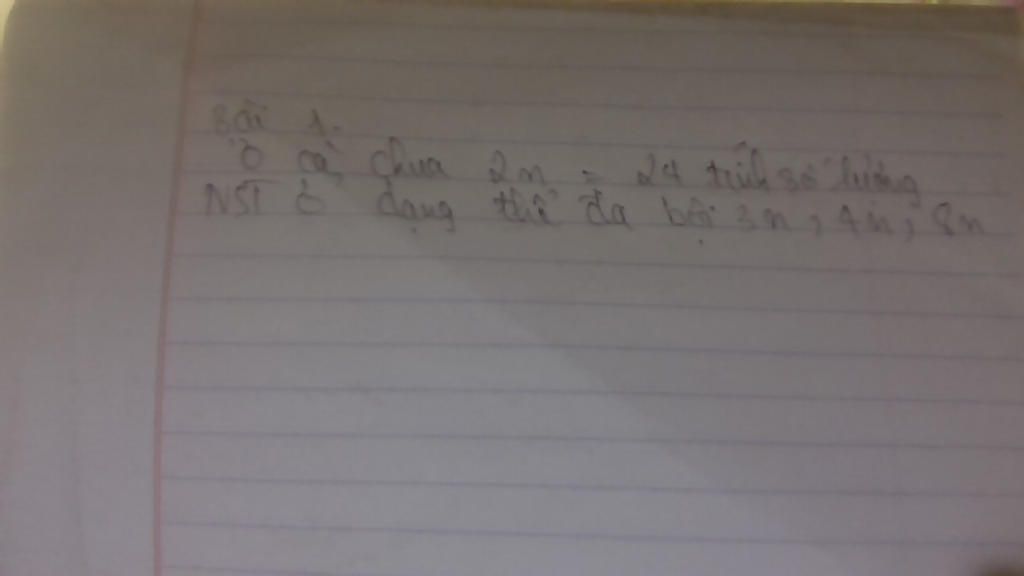 Bài 1.
Ở cà chua 2n = 24 tính số lượng
NST ở dạng thể đa bội 3n, 4n, 8n